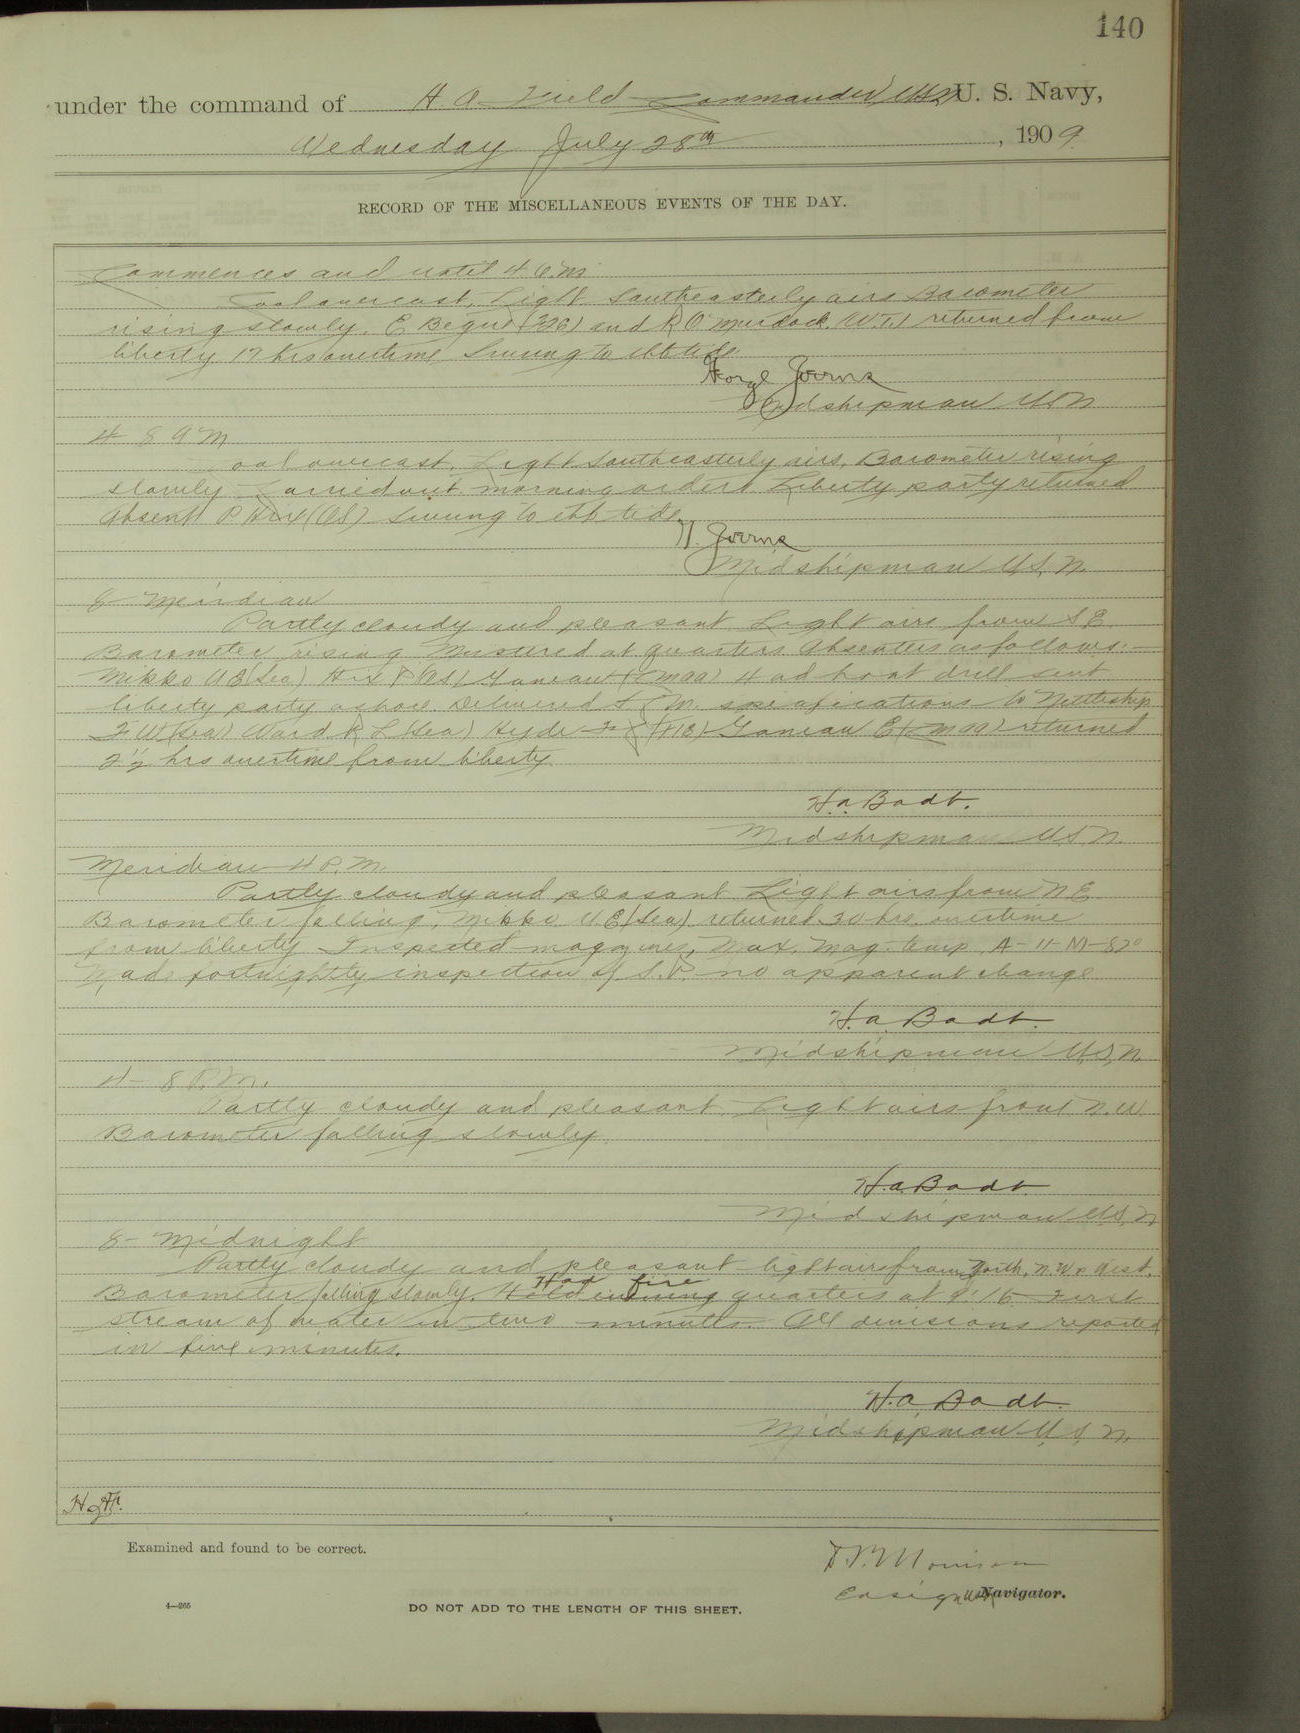 140
under the command of H A Field Commander, USN U. S. Navy,
Wednesday July 28th, 1909
RECORD OF THE MISCELLANEOUS EVENTS OF THE DAY.
Commences and until 4 a.m
Cool overcast. Light Southeasterly airs Barometer
rising slowly. E. and R O Murdock (W.T.) returned from
liberty 17 hrs overtime, Swung to ebb tide
Midshipman USN
4 8 a m
Cool overcast, Light Southeasterly airs, Barometer rising
slowly Carried out morning orders Liberty party returned
Absent P Hix (OS) Swung to ebb tide.
Midshipman U.S.N.
8 Meridian
Partly cloudy and pleasant Light airs from S E
Barometer rising Mustered at quarters Absentees as follows:—
Mikko (Sea) Hix P (OS) 4 ad boat drill sent
liberty party ashore. Delivered specifications to Nettleship
F W (Sea) Ward R L (Sea) Hyde returned
2½ hrs overtime from liberty.
H.a. Badt.
Midshipman U.S.N.
Meridian 4 P.M.
Partly cloudy and pleasant Light airs from N E
Barometer falling, Mikko (Sea) returned 30 hrs. overtime
from liberty Inspected magazines, Max. Mag. temp. A-11-M-82°
Made fortnightly inspection of S.P. no apparent change
H.a. Badt.
Midshipman U.S.N.
4- 8 P.M.
Partly cloudy and pleasant Light airs from N.W
Barometer falling slowly.
H.a. Badt
Midshipman U.S.N
8- Midnight
Partly cloudy and pleasant light airs from North, N.W & West.
Barometer falling slowly. Had fire quarters at 9:15 First
stream of water in two minutes. All divisions reported
in five minutes.
H.a. Badt.
Midshipman U.S.N.
Examined and found to be correct.
Morrison
Ensign USN Navigator.
4—265
DO NOT ADD TO THE LENGTH OF THIS SHEET.